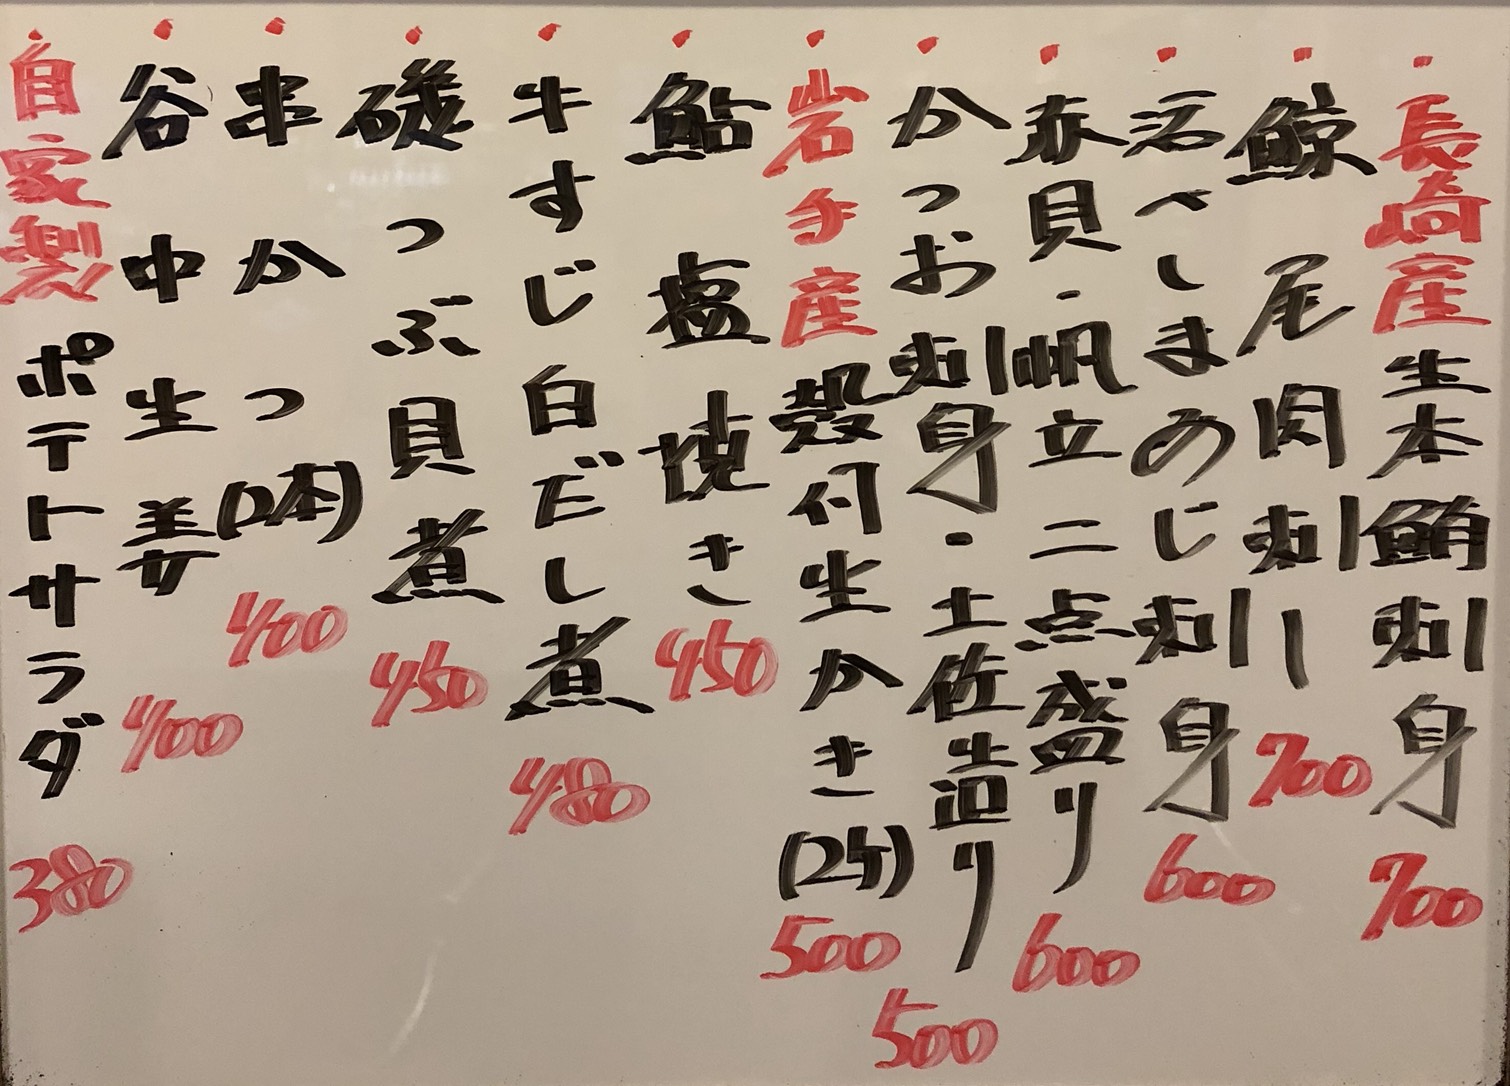 長崎産生本鮪刺身 700
鯨尾肉刺し 700
活べしまあじ刺身 600
赤貝・帆立二点盛り 600
かつお刺身・土佐造り 500
岩手産殻付生かき(2ケ) 500
鮎塩焼き 450
牛すじ白だし煮 480
磯つぶ貝煮 450
串かつ(2本) 400
谷中生姜 400
自家製ポテトサラダ 380